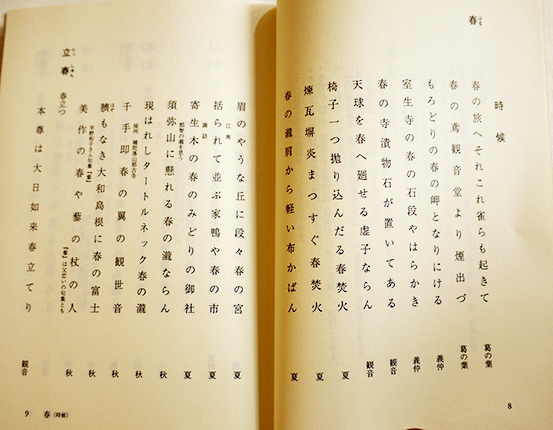 春
はる
時候
春の旅へそれこれ雀らも起きて 葛の葉
春の鳶観音堂より煙出づ 葛の葉
もろどりの春の岬となりにける 義仲
室生寺の春の石段やはらかき 義仲
春の寺漬物石が置いてある 観音
天球を春へ廻せる虚子ならん 観音
椅子一つ抛り込んだる春焚火 夏
煉瓦塀炎まつすぐ春焚火 夏
春の瀧肩から軽い布かばん 夏
8
眉のやうな丘に段々春の宮 夏
括られて並ぶ家鴨や春の市 夏
諏訪
寄生木の春のみどりの御社 夏
須弥山に懸れる春の瀧ならん 秋
現はれしタートルネック春の瀧 秋
房州 補陀落山那古寺
千手即春の翼の観世音 秋
臍もなき大和島根に春の富士 秋
美作の春や藜の杖の人 秋
立春 春立つ
りっしゅん
本尊は大日如来春立てり 観音
9 春(時候)